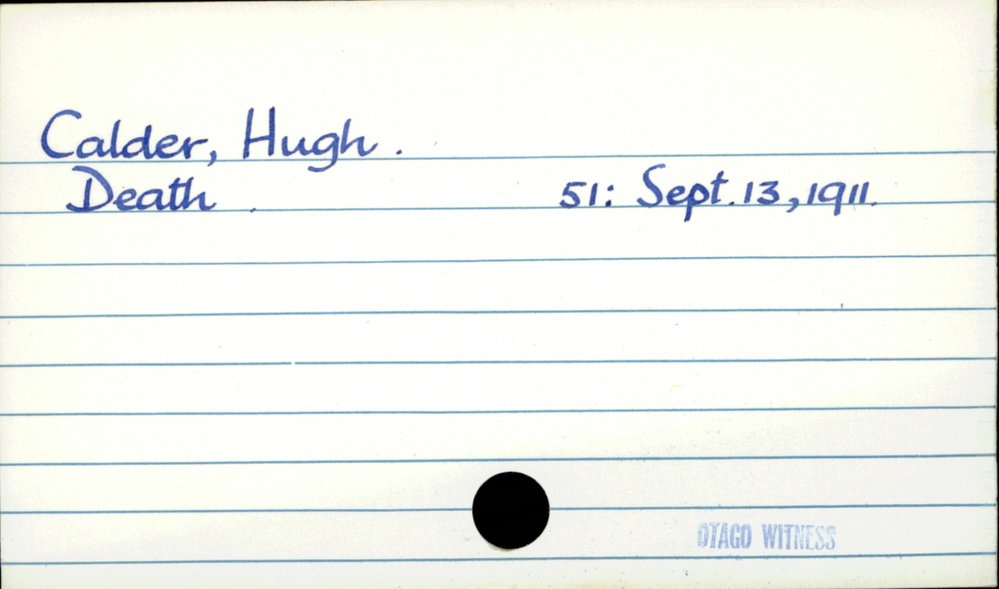 Calder, Hugh.
Death. 51: Sept. 13, 1911.
OTAGO WITNESS